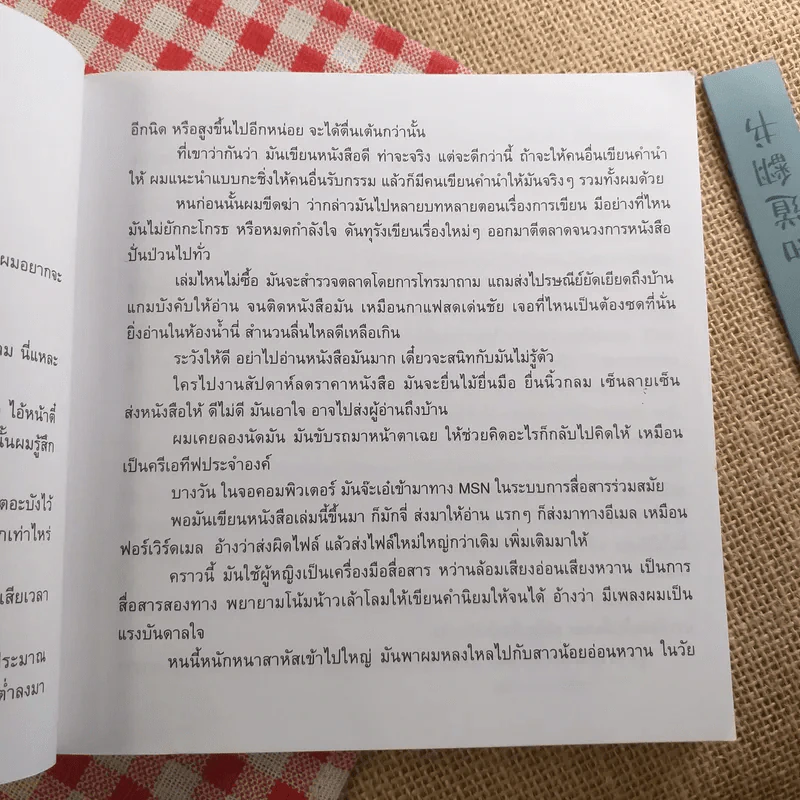 ผมอยากจะ
วม นี่แหละ
ไอ้หน้าตี๋
นั้นผมรู้สึก
ตอะบังไว้
กเท่าไหร่
เสียเวลา
ประมาณ
ต่ำลงมา
อีกนิด หรือสูงขึ้นไปอีกหน่อย จะได้ตื่นเต้นกว่านั้น
ที่เขาว่ากันว่า มันเขียนหนังสือดี ท่าจะจริง แต่จะดีกว่านี้ ถ้าจะให้คนอื่นเขียนคำนำ
ให้ ผมแนะนำแบบกะชิ่งให้คนอื่นรับกรรม แล้วก็มีคนเขียนคำนำให้มันจริงๆ รวมทั้งผมด้วย
หนก่อนนั้นผมขีดฆ่า ว่ากล่าวมันไปหลายบทหลายตอนเรื่องการเขียน มีอย่างที่ไหน
มันไม่ยักกะโกรธ หรือหมดกำลังใจ ดันทุรังเขียนเรื่องใหม่ๆ ออกมาตีตลาดจนวงการหนังสือ
ปั่นป่วนไปทั่ว
เล่มไหนไม่ซื้อ มันจะสำรวจตลาดโดยการโทรมาถาม แถมส่งไปรษณีย์ยัดเยียดถึงบ้าน
แกมบังคับให้อ่าน จนติดหนังสือมัน เหมือนกาแฟสดเด่นชัย เจอที่ไหนเป็นต้องซดที่นั่น
ยิ่งอ่านในห้องน้ำนี่ สำนวนลื่นไหลดีเหลือเกิน
ระวังให้ดี อย่าไปอ่านหนังสือมันมาก เดี๋ยวจะสนิทกับมันไม่รู้ตัว
ใครไปงานสัปดาห์ลดราคาหนังสือ มันจะยื่นไม้ยื่นมือ ยื่นนิ้วกลม เซ็นลายเซ็น
ส่งหนังสือให้ ดีไม่ดี มันเอาใจ อาจไปส่งผู้อ่านถึงบ้าน
ผมเคยลองนัดมัน มันขับรถมาหน้าตาเฉย ให้ช่วยคิดอะไรก็กลับไปคิดให้ เหมือน
เป็นครีเอทีฟประจำองค์
บางวัน ในจอคอมพิวเตอร์ มันจ๊ะเอ๋เข้ามาทาง MSN ในระบบการสื่อสารร่วมสมัย
พอมันเขียนหนังสือเล่มนี้ขึ้นมา ก็มักจี่ ส่งมาให้อ่าน แรกๆ ก็ส่งมาทางอีเมล เหมือน
ฟอร์เวิร์ดเมล อ้างว่าส่งผิดไฟล์ แล้วส่งไฟล์ใหม่ใหญ่กว่าเดิม เพิ่มเติมมาให้
คราวนี้ มันใช้ผู้หญิงเป็นเครื่องมือสื่อสาร หว่านล้อมเสียงอ่อนเสียงหวาน เป็นการ
สื่อสารสองทาง พยายามโน้มน้าวเล้าโลมให้เขียนคำนิยมให้จนได้ อ้างว่า มีเพลงผมเป็น
แรงบันดาลใจ
หนนี้หนักหนาสาหัสเข้าไปใหญ่ มันพาผมหลงใหลไปกับสาวน้อยอ่อนหวาน ในวัย